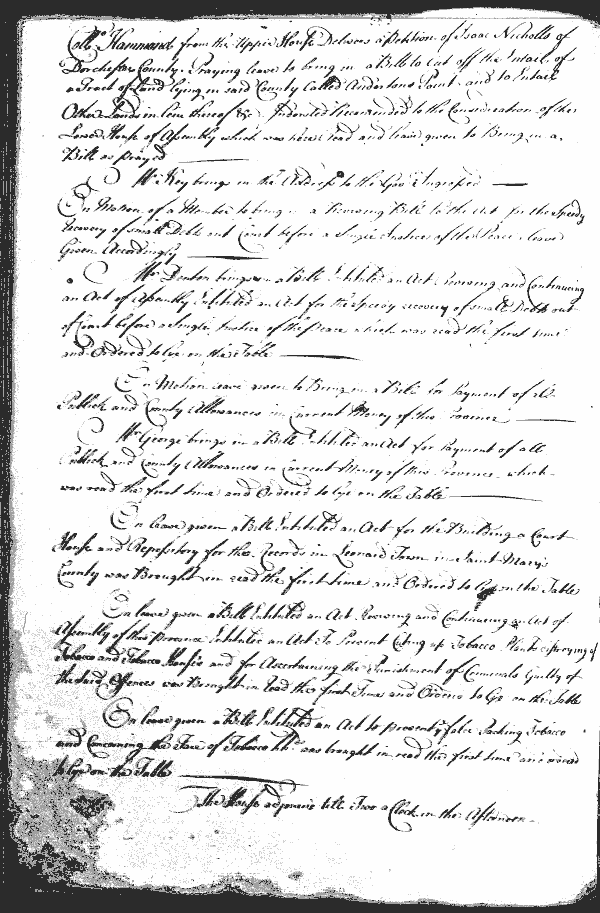 Collo Hammond from the Upper House Delivers a Petition of Isaac Nicholls of
Dorchester County. Praying leave to bring in a Bill to Cut off the Intail of
a Tract of Land lying in said County Called Andertons Point and to Intail
Other Lands in lieu thereof &c Indorsed Recommended to the Consideration of the
Lower House of Assembly which was here read and leave given to Bring in a
Bill as prayed
Mr Key brings in the Address to the Govr Ingrossed
On Motion of a Member to bring in a Reviving Bill to the Act for the Speedy
recovery of small Debts out Court before a Single Justice of the Peace leave
Given Accordingly
Mr Denton brings in a Bill Intituled an Act Reviving and Continuing
an Act of Assembly Intituled an Act for the Speedy recovery of small Debts out
of Court before a Single Justice of the Peace which was read the first time
and Ordered to lye on the Table
On Motion leave given to Bring in a Bill for Payment of all
Publick and County Allowances in Current Money of this Province
Mr George brings in a Bill Intituled an Act for Payment of all
Publick and County Allowances in Current Money of this Province which
was read the first time and Ordered to lye on the Table
On leave given a Bill Intituled an Act for the Building a Court
House and Repository for the Records in Leonard Town in Saint Mary's
County was Brought in read the first time and Ordered to lye on the Table
On leave given a Bill Intituled an Act Reviving and Continuing an Act of
Assembly of this Province Intituled an Act To Prevent Cuting up Tobacco Plants destroying of
Tobacco and Tobacco Houses and for Ascertaining the Punishment of Criminals Guilty of
the said Offences was Brought in read the first Time and Ordered to lye on the Table
On leave given a Bill Intituled an Act to prevent false Packing Tobacco
and Concerning the Tare of Tobacco hhds was brought in read the first time and ordered
to lye on the Table
The House adjourns till Two a Clock in the Afternoon